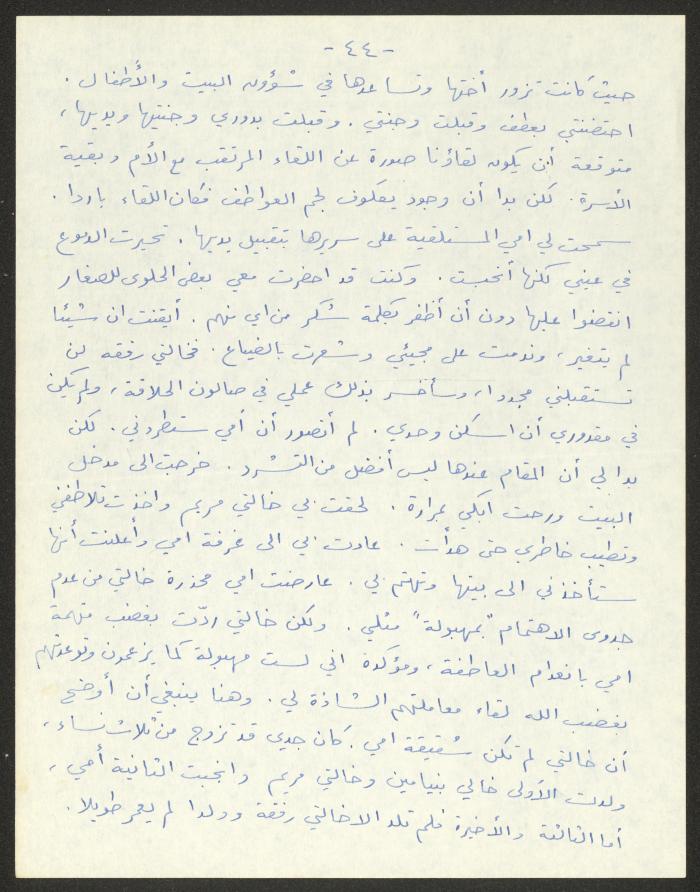 - ٤٤ -
حيث كانت تزور أختها وتساعدها في شؤون البيت والأطفال .
احتضنتني بعطف وقبلت وجنتي . وقبلت بدوري وجنتيها ويديها ،
متوقعة أن يكون لقاؤنا صورة عن اللقاء المرتقب مع الأم وبقية
الأسرة . لكن بدا أن وجود يعكوف لجم العواطف فكان اللقاء باردا .
سمحت لي امي المستلقية على سريرها بتقبيل يديها . تحيرت الدموع
في عيني لكنها أنحبست . وكنت قد احضرت معي بعض الحلوى للصغار
انقضوا عليها دون أن أظفر بكلمة شكر من اي منهم . أيقنت ان شيئا
لم يتغير ، وندمت على مجيئي وشعرت بالضياع . فخالتي رفقه لن
تستقبلني مجددا ، وسأخسر بذلك عملي في صالون الحلاقة ، ولم يكن
في مقدوري أن اسكن وحدي . لم أتصور أن أمي ستطردني . لكن
بدا لي أن المقام عندها ليس أفضل من التشرد . خرجت الى مدخل
البيت ورحت ابكي بمرارة . لحقت بي خالتي مريم واخذت تلاطفني
وتطيب خاطري حتى هدأت . عادت بي الى غرفة امي وأعلنت أنها
ستأخذني الى بيتها وتهتم بي . عارضت امي محذرة خالتي من عدم
جدوى الاهتمام "بمهبولة" مثلي . ولكن خالتي ردّت بغضب متهمة
امي بانعدام العاطفة ، ومؤكدة اني لست مهبولة كما يزعمون وتوعدتهم
بغضب الله لقاء معاملتهم الشاذة لي . وهنا ينبغي أن أوضح
أن خالتي لم تكن شقيقة امي . كان جدي قد تزوج من ثلاث نساء ،
ولدت الأولى خالي بنيامين وخالتي مريم وانجبت الثانية أمي ،
أما الثالثة والأخيرة فلم تلد الا خالتي رفقة وولدا لم يعمر طويلا .